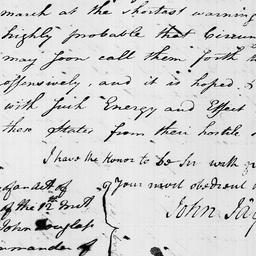 march at the shortest warning
highly probable that Circum
may soon call them forth t
offensively, and it is hoped,
with such Energy and Effect
these States from their hostile
I have the Honor to be Sir with gr
Your most obedient
John Jay
of an act of
of the 12th Inst
John Douglass
mmander of